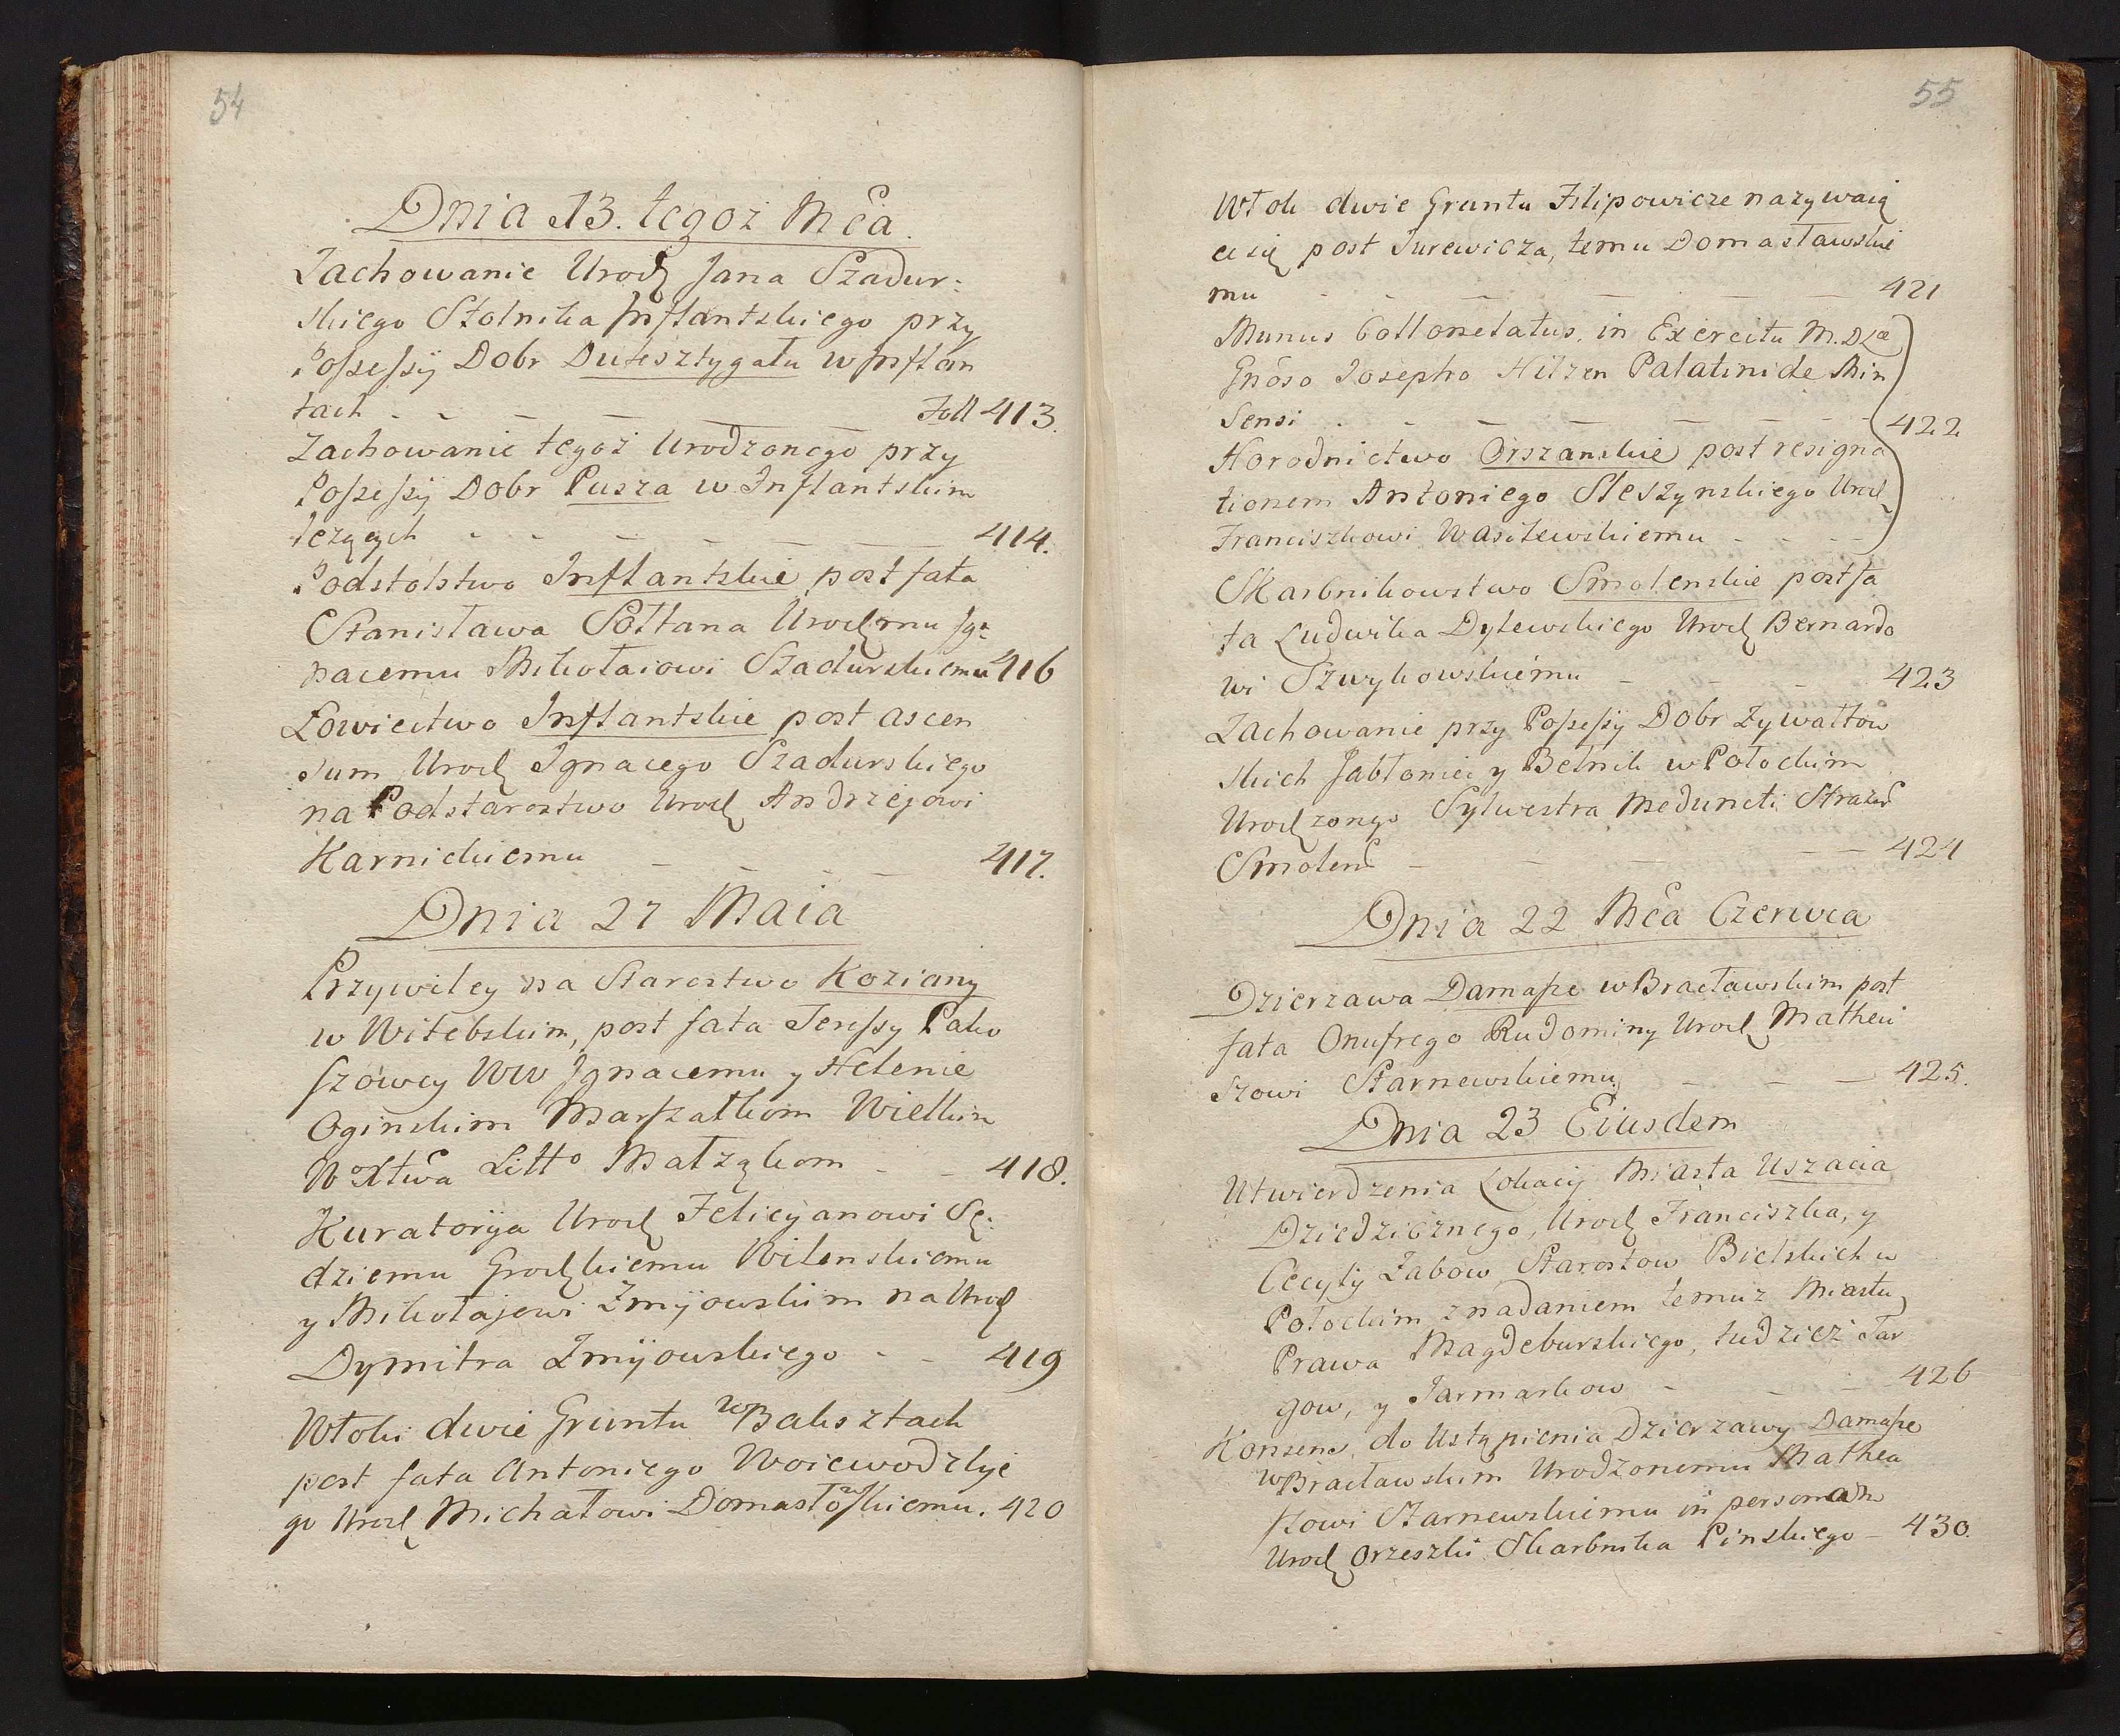 54
Dnia 13. tegoż Mca.
Zachowanie Urodz Jana Szadur:
skiego Stolnika Inflantskiego przy
Possessyi Dobr Duksztygału w Inflan
tach - - - Foll 413.
Zachowanie tegoż Urodzonego przy
Possessyi Dobr Pusza w Inflantskim
leżących - - - 414.
Podstolstwo Inflantskie post fata
Stanisława Sołtana Urodzmu Jg:
nacemu Mikołaiowi Szadurskiemu 416
Łowiectwo Inflantskie post ascen
sum Urodz Ignacego Szadurskiego
na Podstarostwo Urodz Andrzejowi
Karnickiemu - - - 417.
Dnia 27 Maia
Przywiley na Starostwo Koziany
w Witebskim, post fata Teressy Pako
szowey WW Jgnacemu y Helenie
Oginskim Marszałkom Wielkim
W Xtwa Litto Małżąkom - - 418.
Kuratorya Urodz Felicyanowi Sę:
dziemu Grodzkiemu Wilenskiemu
y Mikołajowi Zmijowskim na Urodz
Dymitra Zmijowskiego - - 419
Włoki dwie Gruntu w Baksztach
post fata Antoniego Woiewodzkie
go Urodz Michałowi Domasłowskiemu. 420
55
Włok dwie Gruntu Filipowicze nazywaią
ce się post Jurewicza, temu Domasławskie
mu - - - 421
Munus Collonelatus in Exercitu M. D Lae
Gnoso Josepho Hilzen Palatinide Min
Sensi - - - 422
Horodnictwo Orszanskie post resigna
tionem Antoniego Sleszynskiego Urodz
Franciszkowi Wasilewskiemu - - -
Skarbnikowstwo Smolenskie post fa
ta Ludwika Dylewskiego Urodz Bernardo
wi Szwykowskiemu - - - 423
Zachowanie przy Possessyi Dobr Zywałtow
skich Jabłoniec y Betnik w Połockim
Urodzonego Sylwestra Meduneti Straż
Smolens - - - 424
Dnia 22 Mca Czerwca
Dzierzawa Damasze w Bracławskim post
fata Onufrego Rudominy Urodz Matheu
szowi Starnewskiemu - - - 425.
Dnia 23 Eiusdem
Utwierdzenia Lokacyi Miasta Uszacia
Dziedzicznego, Urodz Franciszka, y
Cecylij Zabow Starostow Bielskich w
Połockim z nadaniem temuz Miastu
Prawa Magdeburskiego, tudzież Tar
gow, y Jarmarkow - - - 426
Konsens do Ustąpienia Dzierzawy Damasze
w Bracławskim Urodzonemu Mathea
szowi Starnewskiemu in personam
Urodz Orzeszki Skarbnika Pinskiego - 430.